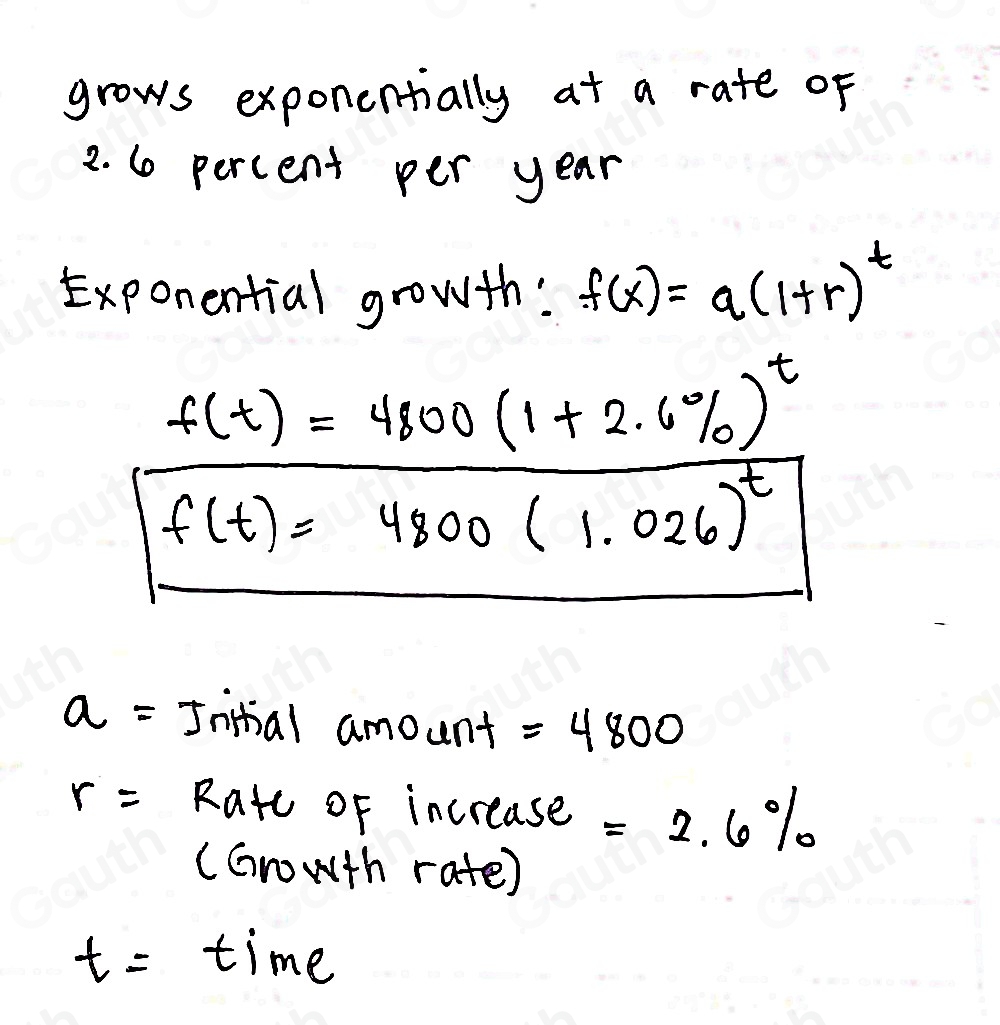 grows exponentially at a rate of
2.6 percent per year
Exponential growth: f(x) = a(1+r)^t
f(t) = 4800 (1 + 2.6%)^t
f(t) = 4800 (1.026)^t
a = Initial amount = 4800
r = Rate of increase = 2.6%
(Growth rate)
t = time